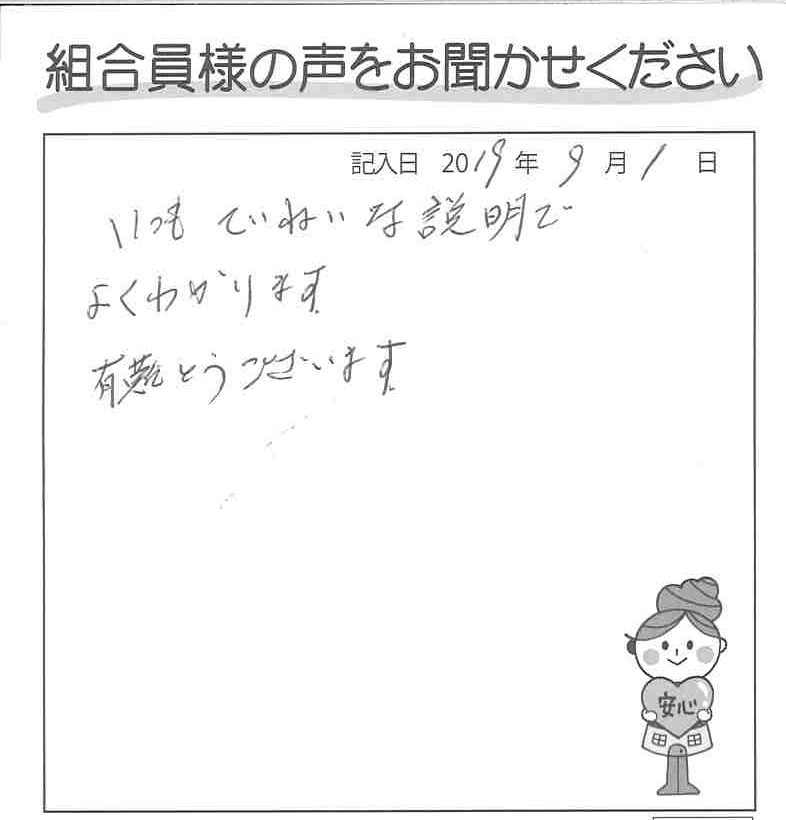 組合員様の声をお聞かせください
記入日 2019年 9月 1日
いつも ていねいな説明で
よくわかります
有難とうございます
安心